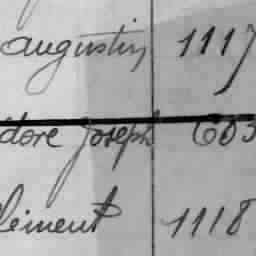 augustin 1117
dore Joseph 603
lément 1118